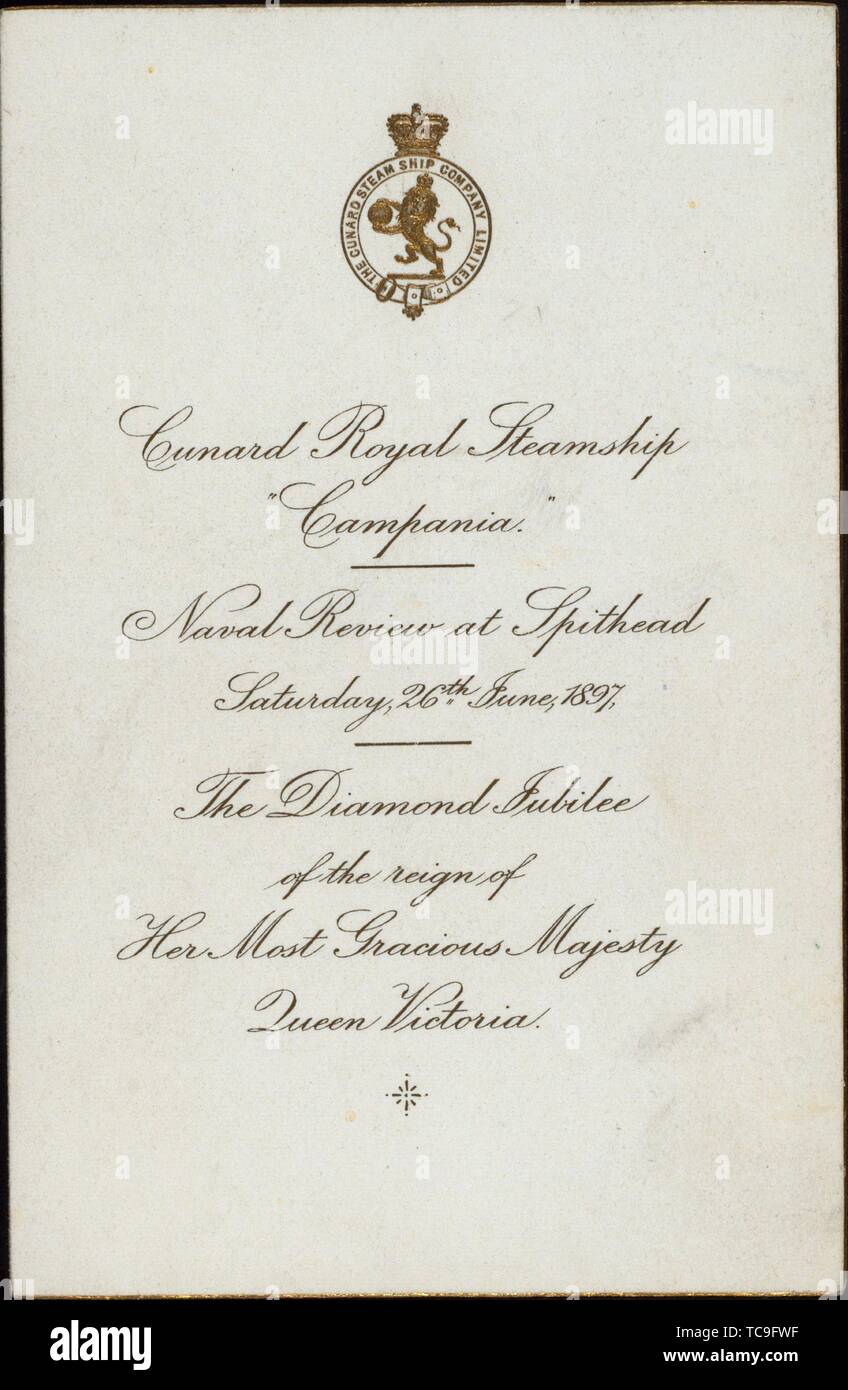 THE CUNARD STEAM SHIP COMPANY LIMITED
Cunard Royal Steamship
"Campania."
Naval Review at Spithead
Saturday, 26th June, 1897,
The Diamond Jubilee
of the reign of
Her Most Gracious Majesty
Queen Victoria.
alamy
alamy
alamy
a alamy
Image ID: TC9FWF
www.alamy.com